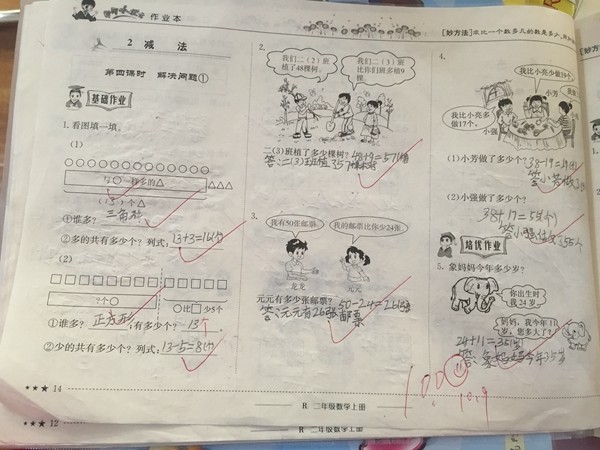 作业本
[妙方法]求比一个数多几的数是多少,用
2 减 法
第四课时 解决问题①
基础作业
1.看图填一填。
(1)
与○一样多的△
(13)个△
①谁多? 三角形
②多的共有多少个? 列式: 13+3=16(个)
(2)
?个○
○比□少5个
①谁多? 正方形 ;有多少个? 13个
②少的共有多少个? 列式: 13-5=8(个)
★★★ 14
2.
我们二(2)班植了48棵树。
我们二(3)班比你们班多植9棵。
二(3)班植了多少棵树? 48+9=57(棵)
答:二(3)班植57棵树
3.
我有50张邮票。
我的邮票比你少24张。
龙龙
元元
元元有多少张邮票? 50-24=26(张)
答:元元有26张邮票
R 二年级数学上册
4.
我比小亮少做19个。
小芳
我比小亮多做17个。
小强
(1)小芳做了多少个? 38-19=19(个)
(2)小强做了多少个?
38+17=55(个)
培优作业
5.象妈妈今年多少岁?
你出生时我24岁。
妈妈,我今年11岁,您多大了?
24+11=35(岁)
答:象妈妈今年35岁
100
10.9
★★★ 12
R 二年级数学上册